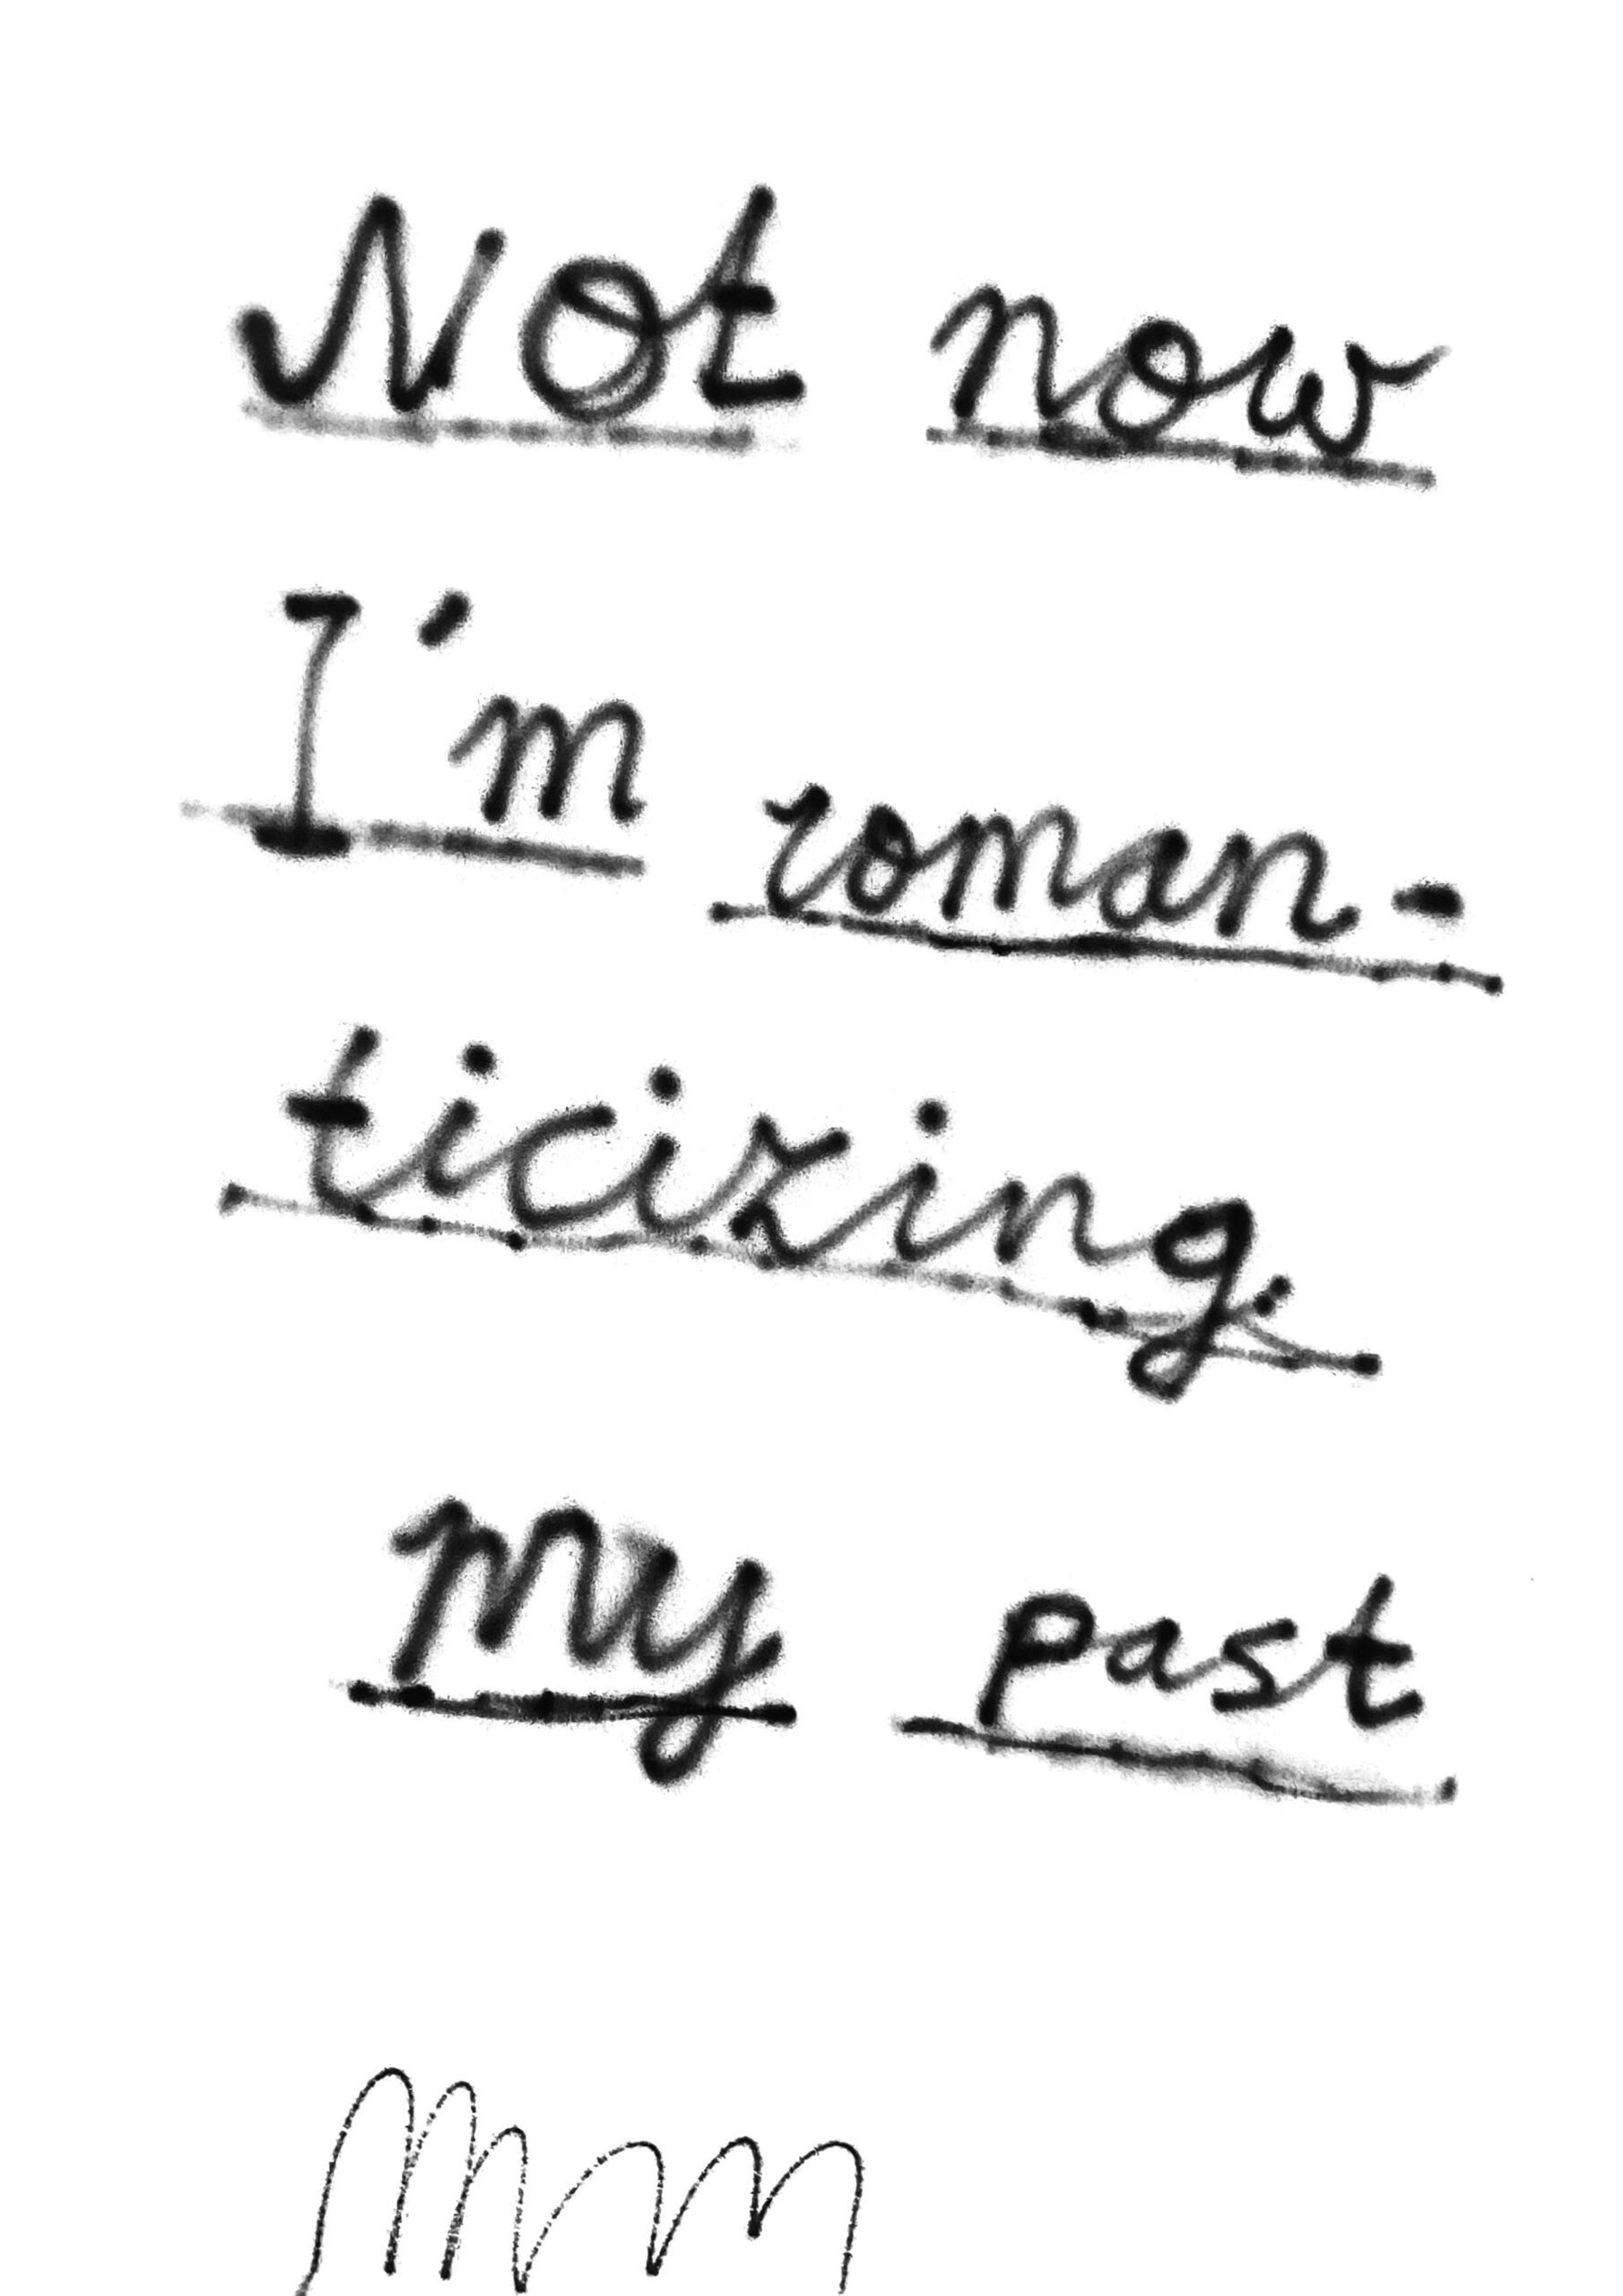 Not now
I'm roman-
ticizing.
my past